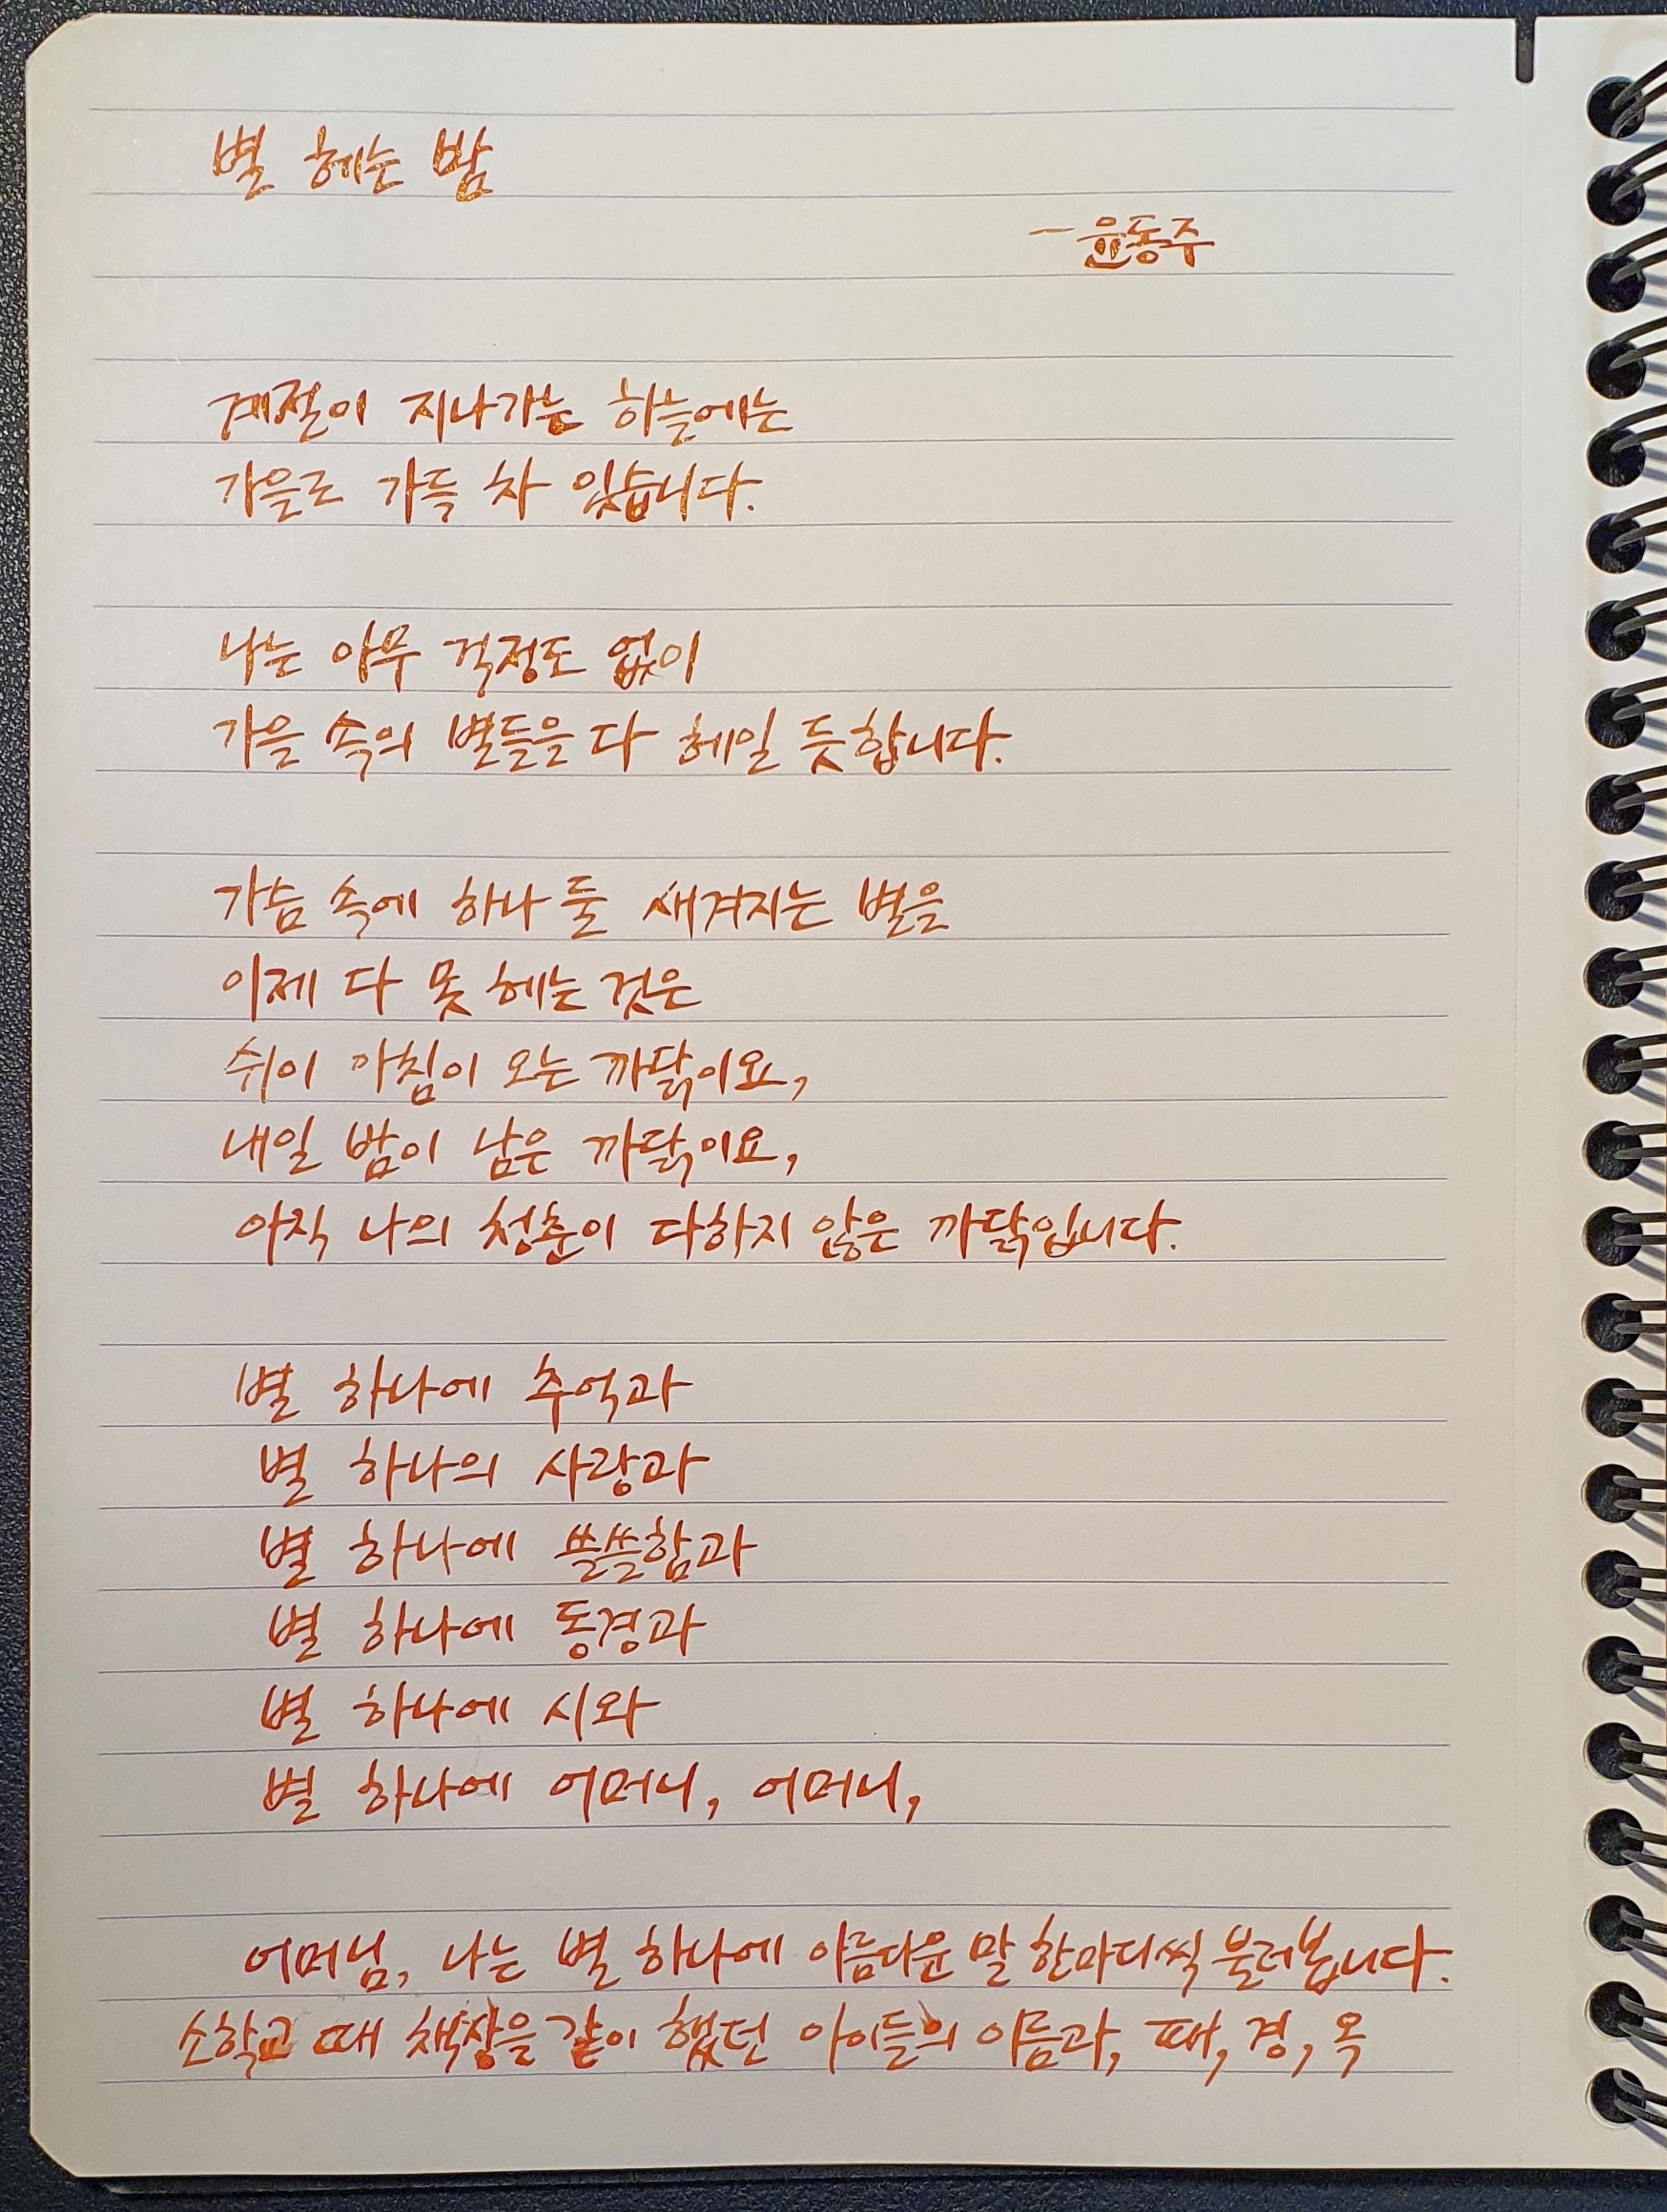 별 헤는 밤
- 윤동주
계절이 지나가는 하늘에는
가을로 가득 차 있습니다.
나는 아무 걱정도 없이
가을 속의 별들을 다 헤일 듯합니다.
가슴 속에 하나 둘 새겨지는 별을
이제 다 못 헤는 것은
쉬이 아침이 오는 까닭이요,
내일 밤이 남은 까닭이요,
아직 나의 청춘이 다하지 않은 까닭입니다.
별 하나에 추억과
별 하나의 사랑과
별 하나에 쓸쓸함과
별 하나에 동경과
별 하나에 시와
별 하나에 어머니, 어머니,
어머님, 나는 별 하나에 아름다운 말 한마디씩 불러봅니다.
소학교 때 책상을 같이 했던 아이들의 이름과, 패, 경, 옥